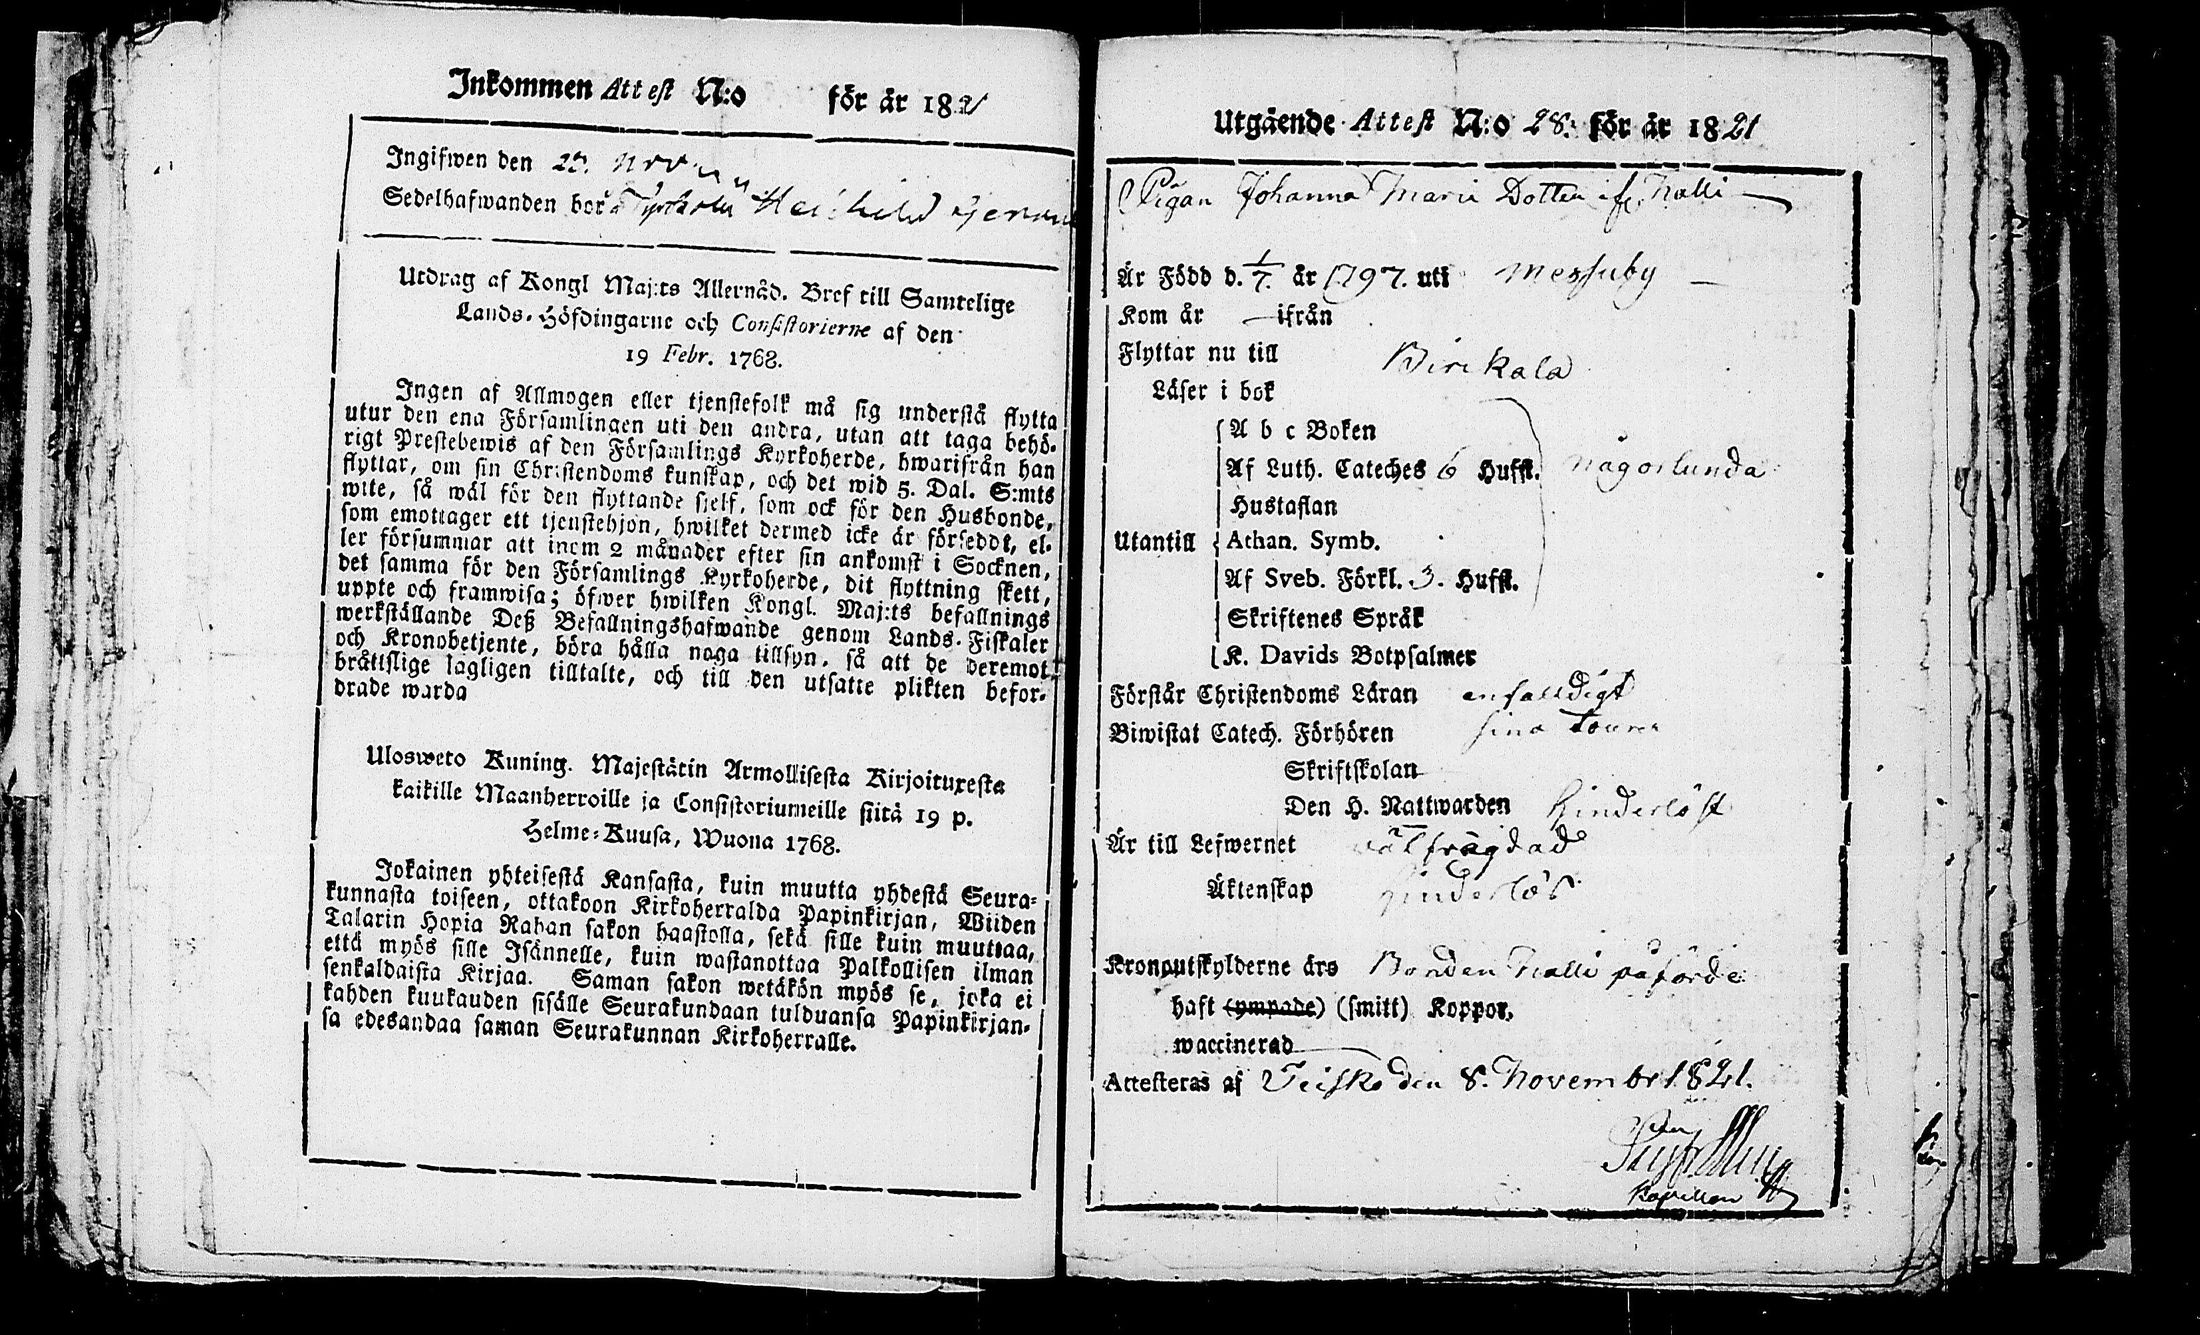 Inkommen Attest N:o för år 1821
Ingifwen den 25. Nov
Sedelhafwanden bor
Utdrag af Kongl Maj:ts Allernåd. Bref till Samtelige
Lands-Höfdingarne och Consistorierne af den
19 Febr. 1768.
Ingen af Allmogen eller tjenstefolk må sig understå flytta
utur den ena Församlingen uti den andra, utan att taga behö-
rigt Prestebewis af den Församlings Kyrkoherde, hwarifrån han
flyttar, om sin Christendoms kunskap, och det wid 5. Dal. S:mts
wite, så wäl för den flyttande sjelf, som ock för den Husbonde,
som emottager ett tjenstehjon, hwilket dermed icke är försedd, el-
ler försummar att inom 2 månader efter sin ankomst i Socknen,
det samma för den Församlings Kyrkoherde, dit flyttning skett,
uppte och framwisa; öfwer hwilken Kongl. Maj:ts befallnings
werkställande Deß Befallningshafwande genom Lands-Fiskaler
och Kronobetjente, böra hålla noga tillsyn, så att de deremot
bråttslige lagligen tilltalte, och till den utsatte plikten befor-
drade warda
Ulosweto Kuning. Majestätin Armollisesta Kirjoituxesta
kaikille Maanherroille ja Consistoriumeille siitä 19 p.
Helme-Kuusa, Wuona 1768.
Jokainen yhteisestä Kansasta, kuin muutta yhdestä Seura-
kunnasta toiseen, ottakoon Kirkoherralda Papinkirjan, Wiiden
Talarin Hopia Rahan sakon haastolla, sekä sille kuin muuttaa,
että myös sille Isännelle, kuin wastanottaa Palkollisen ilman
senkaldaista Kirjaa. Saman sakon wetäkön myös se, joka ei
kahden kuukauden sisälle Seurakundaan tulduansa Papinkirjan-
sa edesandaa saman Seurakunnan Kirkoherralle.
Utgående Attest N:o 28. för år 1821
Pigan Johanna Maria Dotter ifr. Nalli
Är Född d. 1/7. år 1797. uti Messuby
Kom år — ifrån
Flyttar nu till Birkala
Läser i bok
A b c Boken
Af Luth. Cateches 6 Hufst. någorlunda
Hustaflan
Utantill Athan. Symb.
Af Sveb. Förkl. 3. Hufst.
Skriftenes Språk
K. Davids Botpsalmer
Förstår Christendoms Läran enfalldigt
Biwistat Catech. Förhören sina tourer
Skriftskolan
Den H. Nattwarden Hinderlöst
Är till Lefwernet välfrägdad
Äktenskap hinderlös
Kronoutskylderne års Bonden Nalli påförde
haft (ympade) (smitt) Koppor,
waccinerad
Attesteras af Teisko den 8. November 1821.
Kapellan